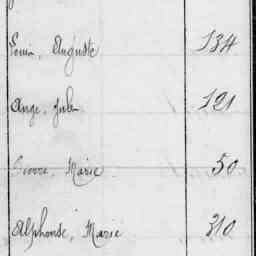 Louis, Auguste 134
Ange, Jules 121
Pierre, Marie 50
Alphonse, Marie 310